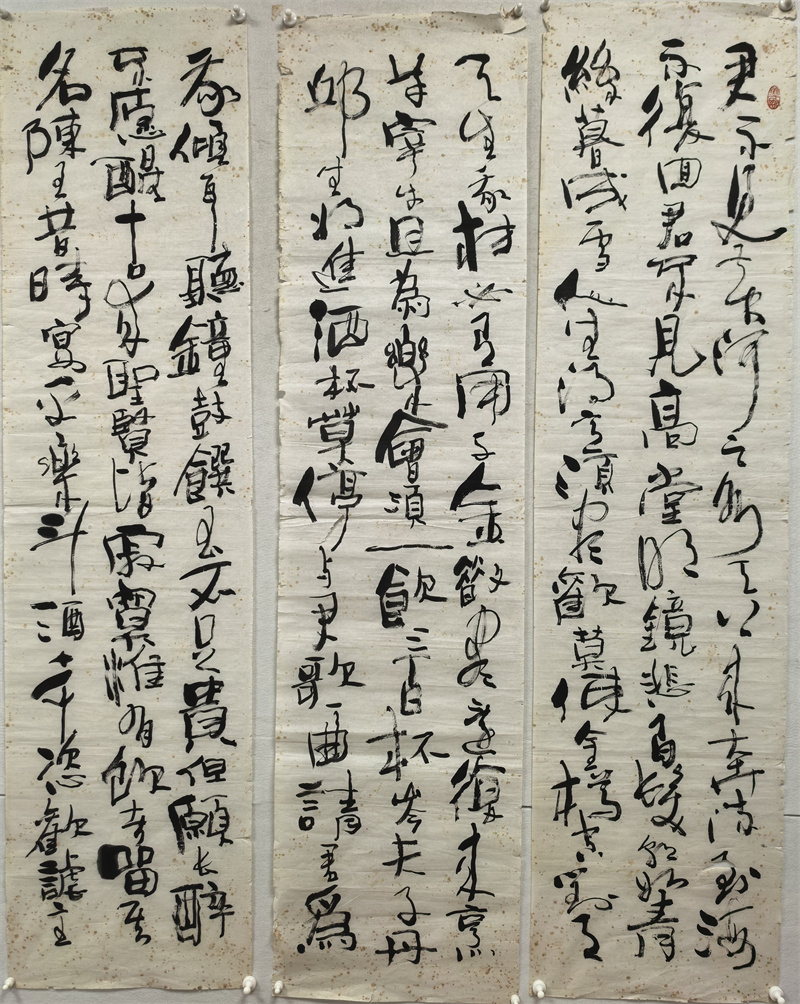 君不见黄河之水天上来奔流到海
不復回君不見高堂明鏡悲白髮朝如青
絲暮成雪人生得意須盡歡莫使金樽空對月
天生我材必有用千金散盡還復來烹
羊宰牛且為樂會須一飲三百杯岑夫子丹
邱生将進酒杯莫停与君歌一曲請君為
我傾耳聽鐘鼓饌玉不足貴但願长醉
不愿醒古来聖賢皆寂寞惟有飲者留其
名陳王昔時宴平樂斗酒十千恣歡謔主